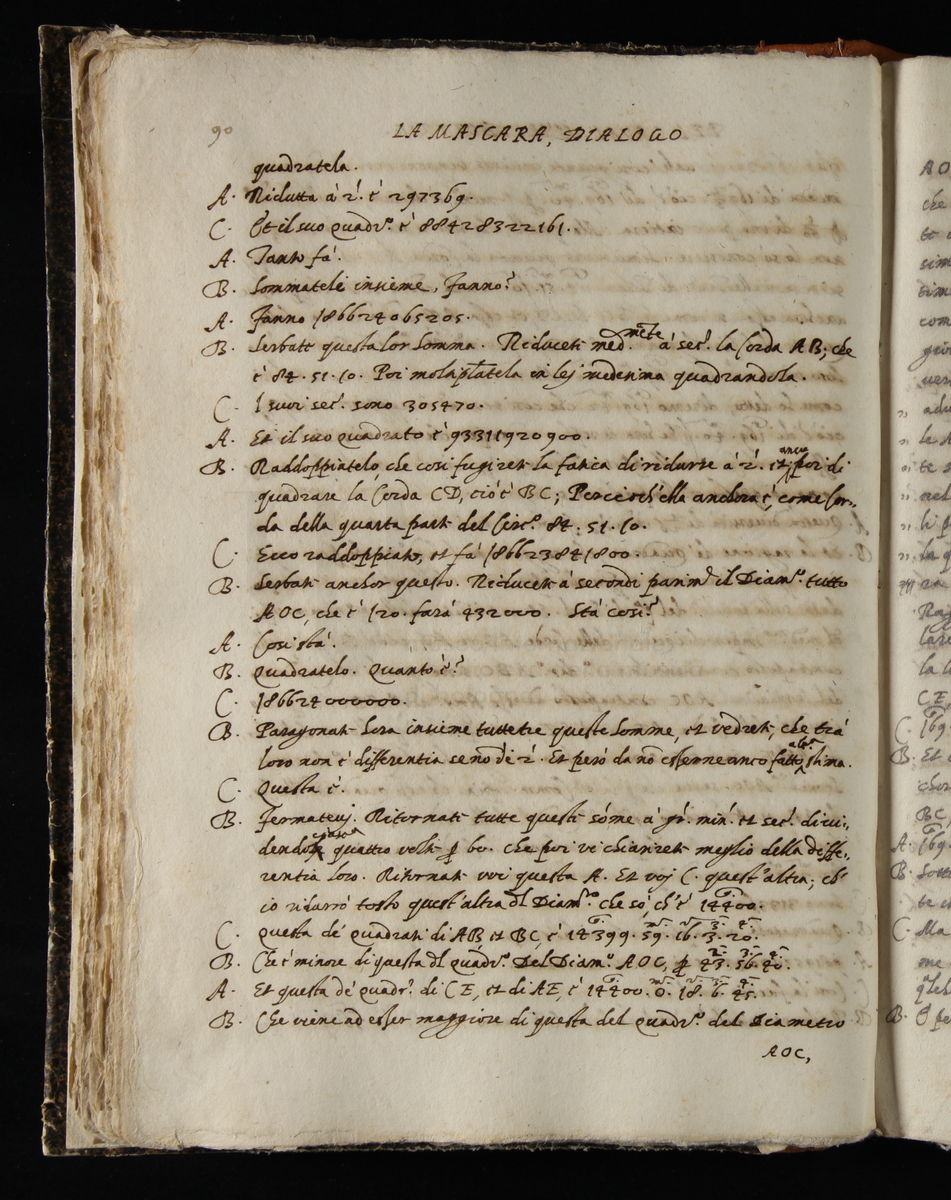 90
LA MASCARA, DIALOGO
quadratela.
A. Ridutta à 2.' è 297369.
C. Et il suo quadr.º è 88428322161.
A. Tanto fà.
B. Sommatele insieme, fanno?
A. Fanno 186624065205.
B. Serbate questa lor somma. Riducete med.mẽte à sec.' la corda AB; che
è 84. 51. 10. Poi molaplatela in lej medesima quadrandola.
C. I suoi sec.' sono 305470.
A. Et il suo quadrato è 93311920900.
B. Raddoppiatelo, che così fugirete la fatica di ridurre à 2.' et anco poi di
quadrare la corda CD, ciò è BC; Percioch'ella anchora è, come Cor-
da della quarta parte del Circ.º 84. 51. 10.
C. Ecco raddoppiato, et fà 186623841800.
B. Serbate anchor questo. Riducete à secondi parim.' il Diam.º tutto
AOC, che è 120. farà 432000. Stà così?
A. Così stà.
B. Quadratelo. Quanto è?
C. 186624000000.
B. Paragonate hora insieme tuttetre queste somme, et vedrete, che trà
loro non è differentia se nõ de 2.' Et però da nõ esserne anco fatto stima.
C. Questa è.
B. Fermatevj. Ritornate tutte queste sõme à gr.' min.' et sec.' divi-
dendo quattro volte p 60. che poi vi chiarirete meglio della diffe-
rentia loro. Ritornate voi questa A. Et voj C. quest'altra; ch'
io ridurrò tosto quest'altra dl Diam.º che sò, ch'è 14400.
C. Questa de' quadrati di AB et BC, è 14399. 59. 16. 3. 20.
B. Che è minore di questa dl quadr.º Del Diam.º AOC, p 43. 56. 40.
A. Et questa de' quadr.' di CE, et di AE, è 14400. 0. 18. 6. 45.
B. Che viene ad esser maggiore di questa del quadr.º del Diametro
AOC,